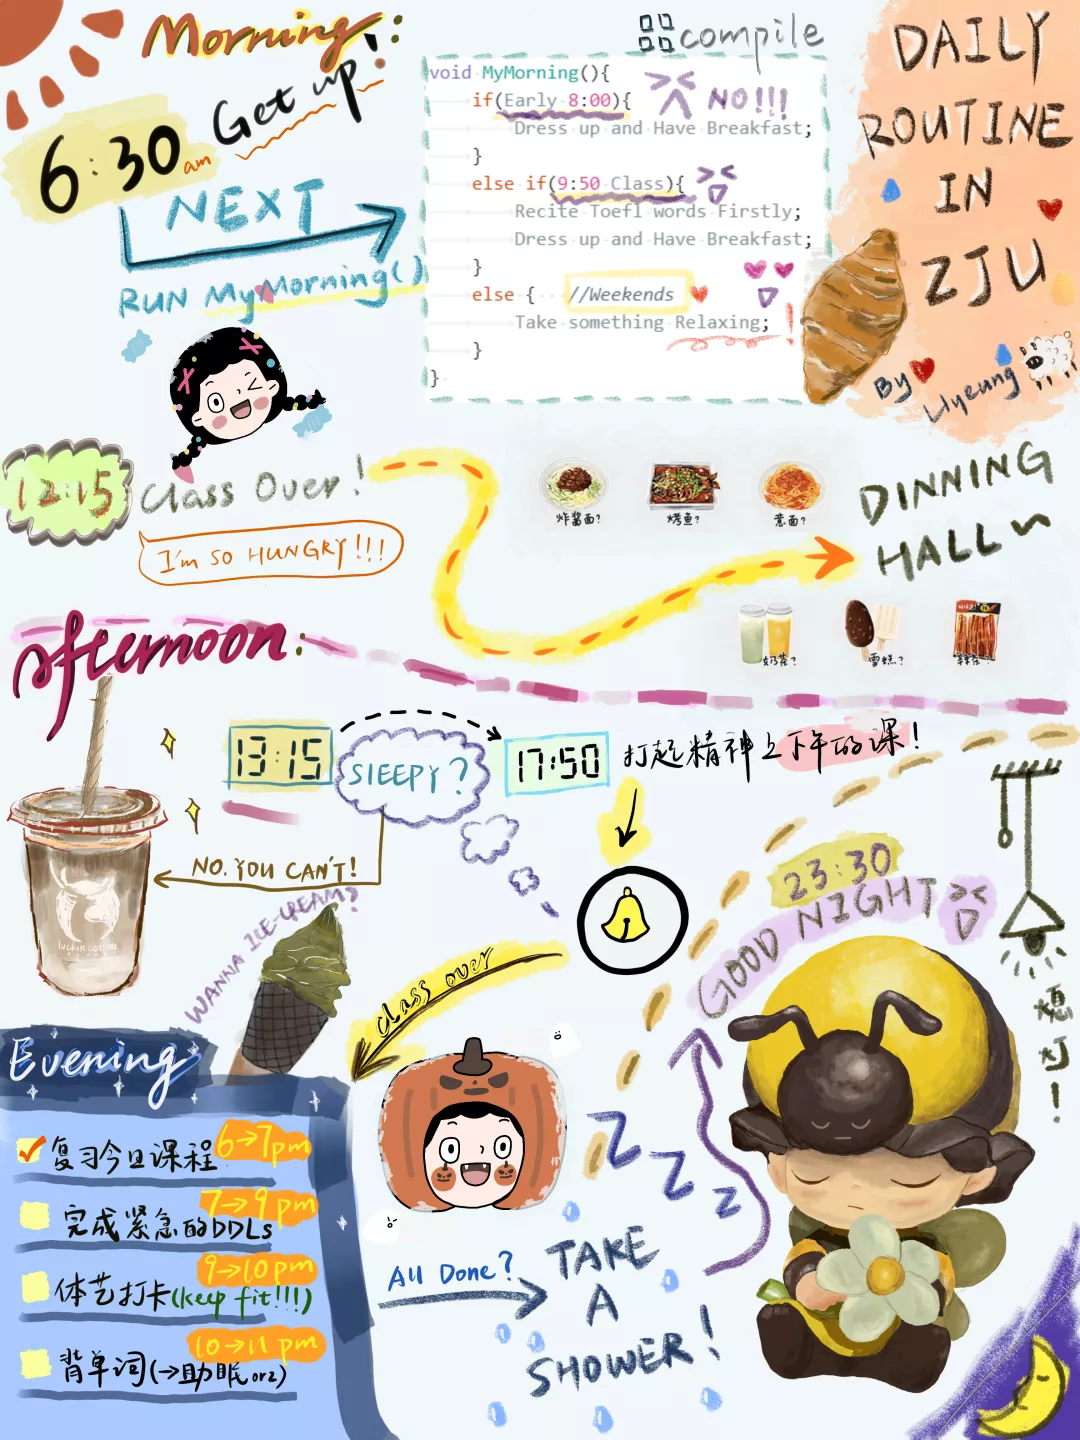 Morning!:
compile
DAILY
ROUTINE
IN
ZJU
By Liyeung
6:30 am Get up!
NEXT
RUN MyMorning()
void MyMorning(){
if(Early 8:00){
NO!!!
Dress up and Have Breakfast;
}
else if(9:50 Class){
Recite Toefl words Firstly;
Dress up and Have Breakfast;
}
else { //Weekends
Take something Relaxing;
}
}
12:15 Class Over!
I'm SO HUNGRY!!!
炸酱面?
烤鱼?
意面?
DINNING
HALL~
奶茶?
雪糕?
辣条?
afternoon:
13:15
SlEEPY?
17:50
打起精神上下午的课!
NO. YOU CAN'T!
luckin coffee
WANNA ICE-CREAM?
class over
23:30
GOOD NIGHT
熄灯!
Evening
复习今日课程 6→7pm
完成紧急的DDLs 7→9pm
体艺打卡(keep fit!!!) 9→10pm
背单词(→助眠orz) 10→11pm
All Done?
TAKE
A
SHOWER!
Z
Z
Z